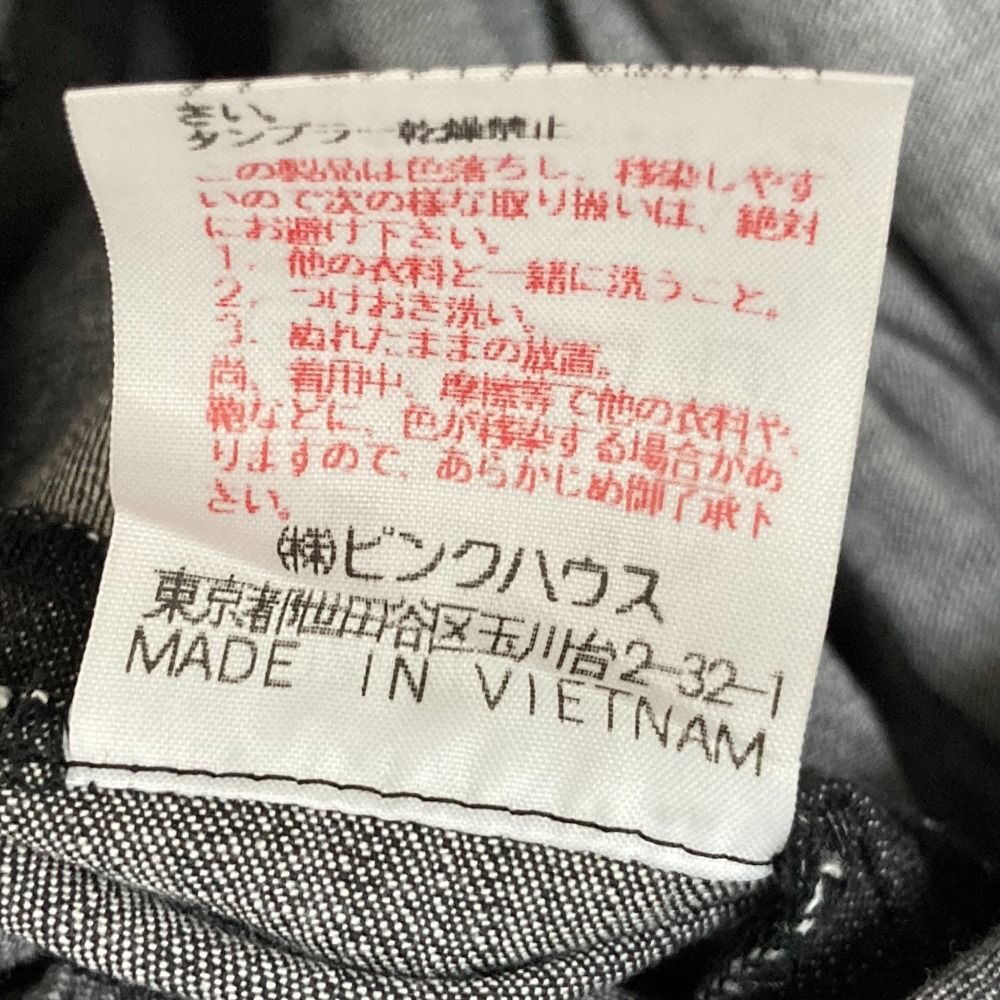 さい。
タンブラー乾燥禁止
この製品は色落ちし、移染しやす
いので次の様な取り扱いは、絶対
にお避け下さい。
1．他の衣料と一緒に洗うこと。
2．つけおき洗い。
3．ぬれたままの放置。
尚、着用中、摩擦等で他の衣料や、
靴などに、色が移染する場合があ
りますので、あらかじめ御了承下
さい。
㈱ピンクハウス
東京都世田谷区玉川台2-32-1
MADE IN VIETNAM